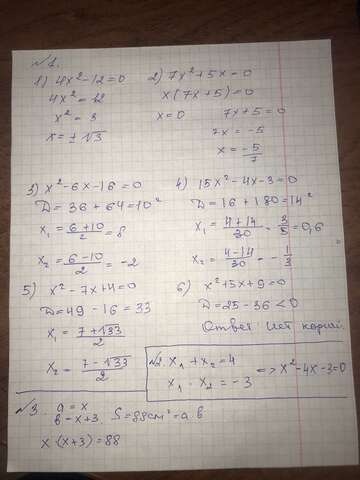 №1.
1) 4x²-12=0
4x²=12
x²=3
x=±√3
2) 7x²+5x=0
x(7x+5)=0
x=0 7x+5=0
7x=-5
x=-5/7
3) x²-6x-16=0
D=36+64=10²
x₁=(6+10)/2=8
x₂=(6-10)/2=-2
4) 15x²-4x-3=0
D=16+180=14²
x₁=(4+14)/30=3/5=0,6
x₂=(4-14)/30=-1/3
5) x²-7x+4=0
D=49-16=33
x₁=(7+√33)/2
x₂=(7-√33)/2
6) x²+5x+9=0
D=25-36<0
Ответ: нет корней.
№2. x₁+x₂=4
x₁·x₂=-3 => x²-4x-3=0
№3. a=x
b=x+3. S=88см²=a b
x·(x+3)=88